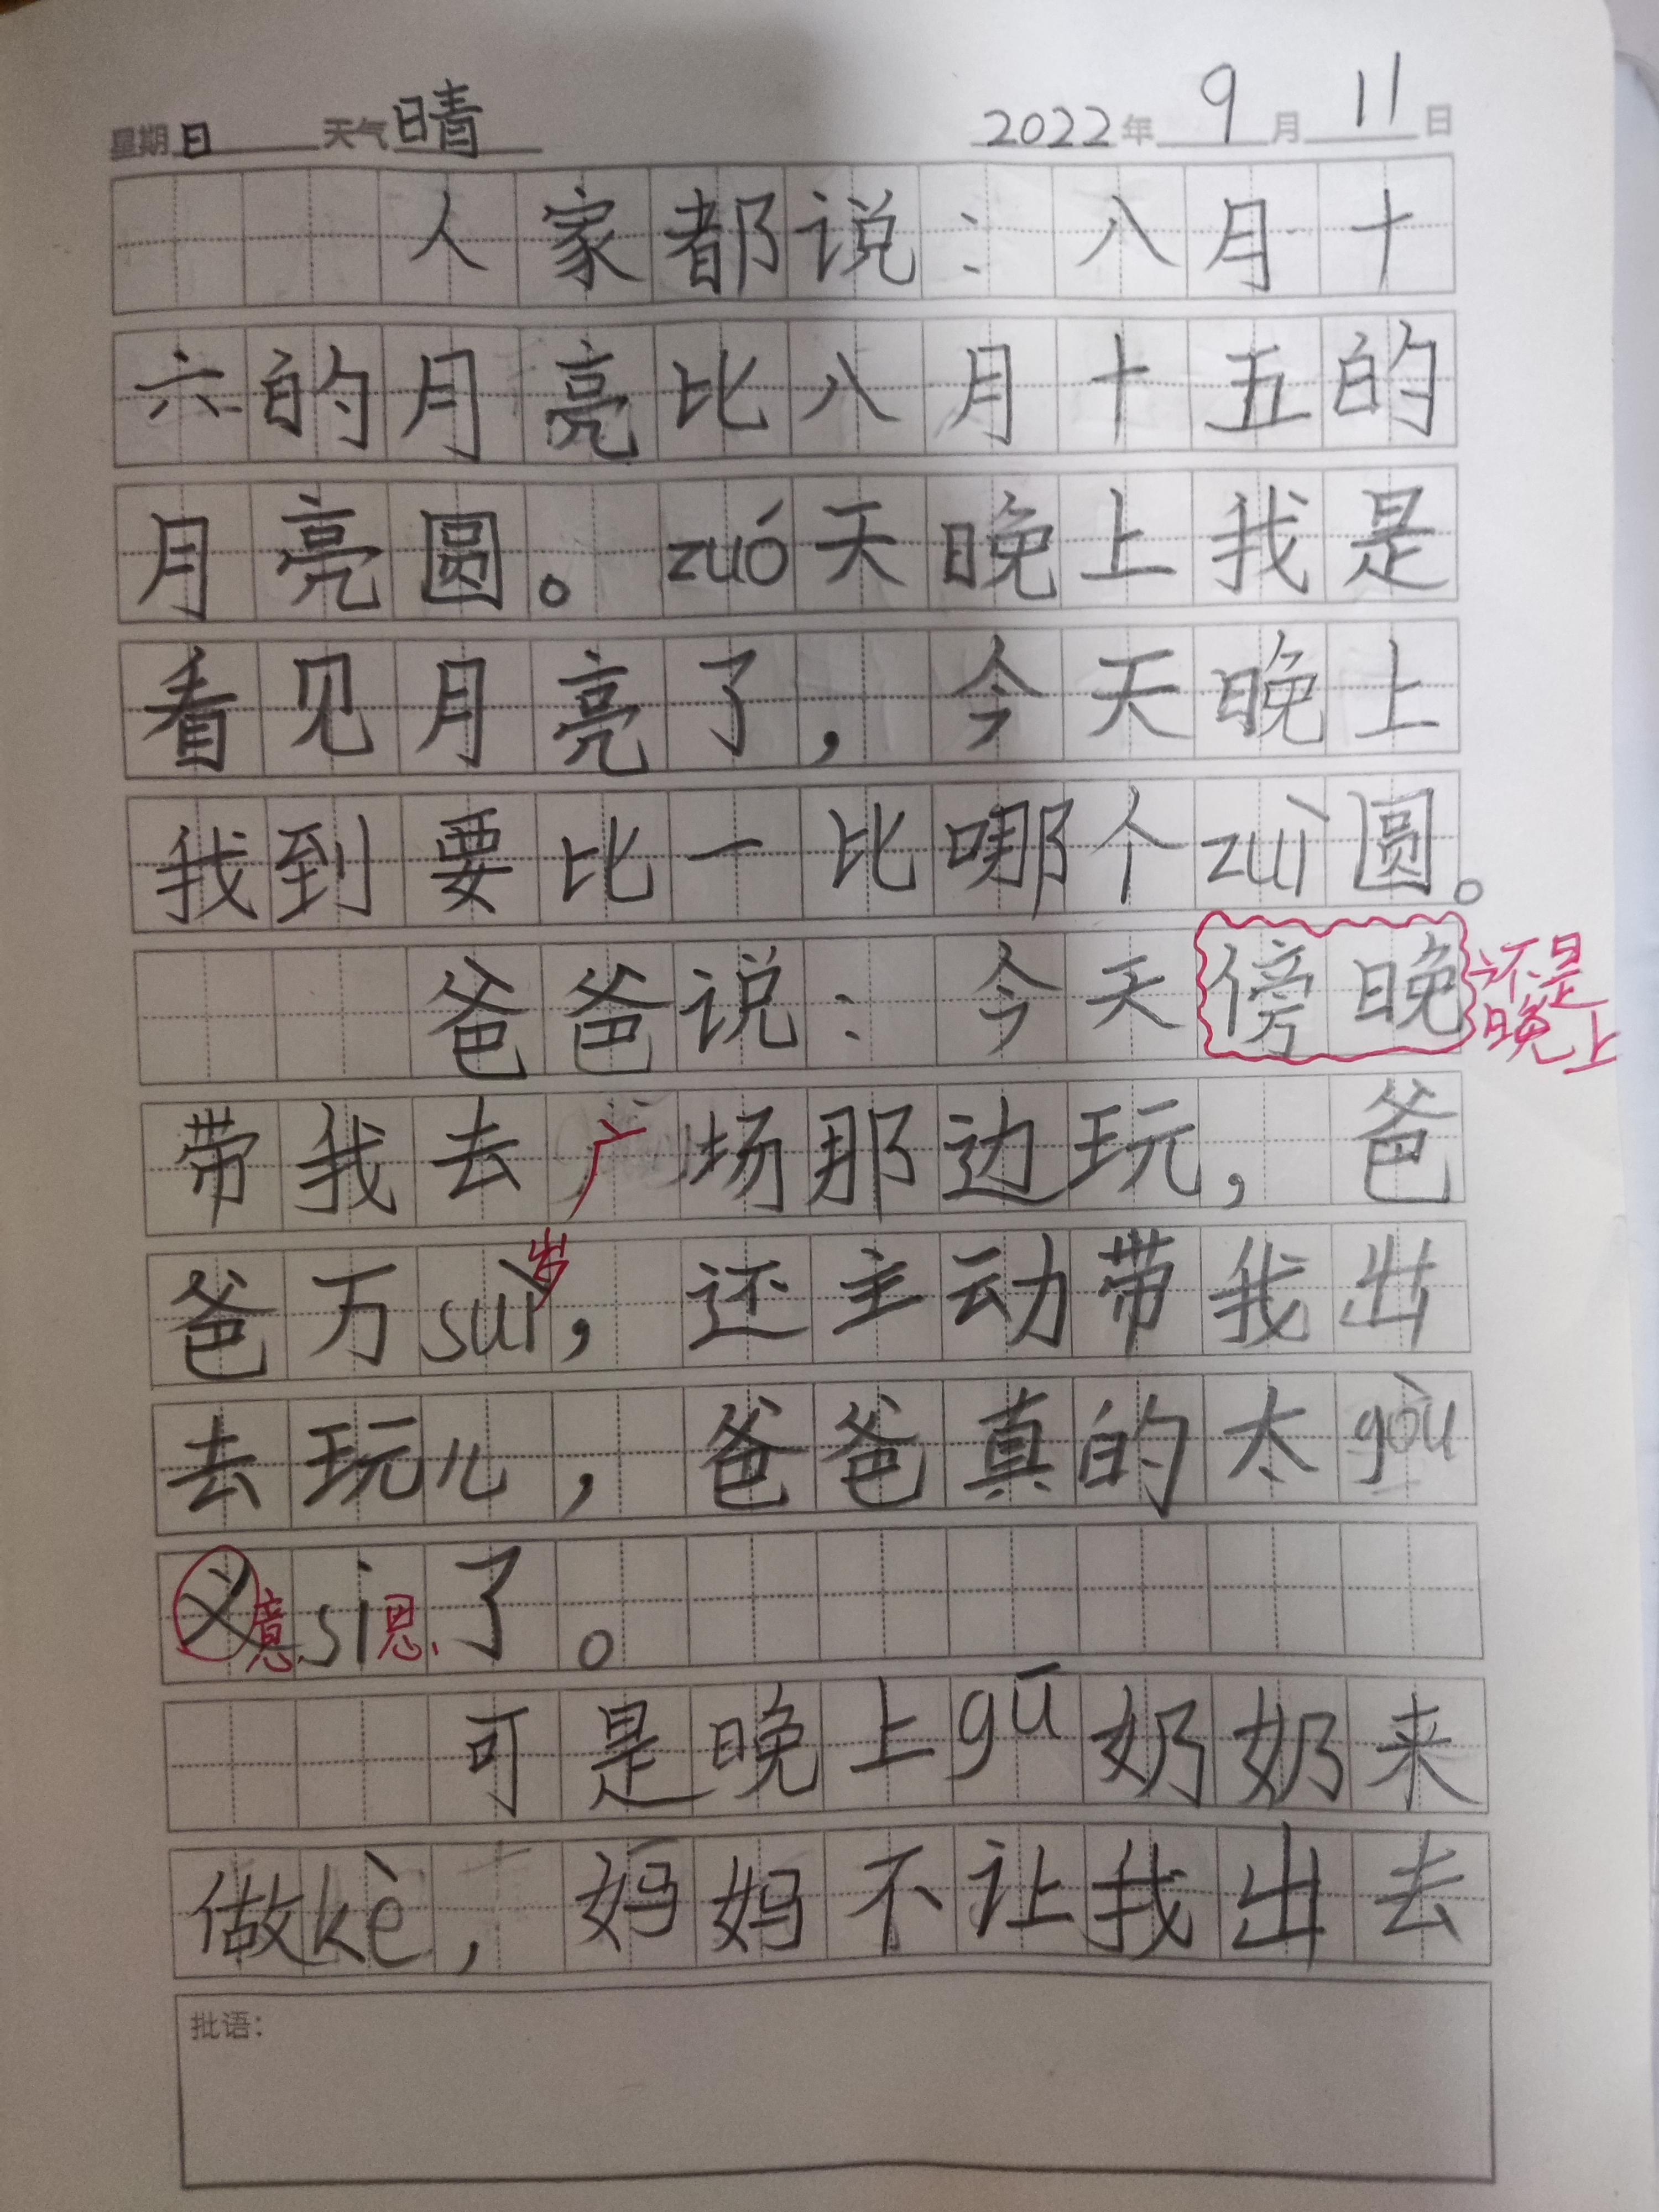 星期日 天气晴 2022年9月11日
人家都说：八月十
六的月亮比八月十五的
月亮圆。zuó天晚上我是
看见月亮了，今天晚上
我到要比一比哪个zuì圆。
爸爸说：今天傍晚 还是
晚上
带我去广场那边玩，爸
爸万suì岁，还主动带我出
去玩儿，爸爸真的太gòu
义意si思了。
可是晚上gū奶奶来
做kè，妈妈不让我出去
批语：